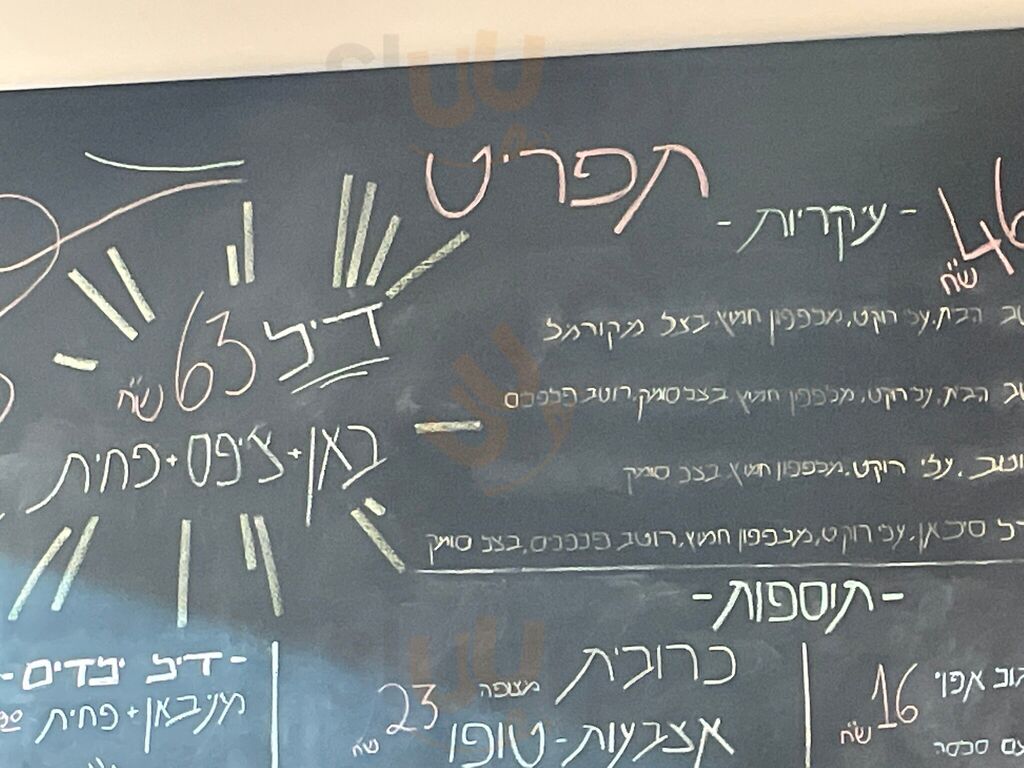 תפריט
- עיקריות -
46 ש"ח
הבית, עלי רוקט, מלפפון חמוץ, בצל מקורמל
הבית, עלי רוקט, מלפפון חמוץ, בצל סומק, רוטב פלפלים
עלי רוקט, מלפפון חמוץ, בצל סומק
עלי רוקט, מלפפון חמוץ, רוטב פלפלים, בצל סומק
דיל 63 ש"ח
באן + צ'יפס + פחית
- תוספות -
כרובית מצופה
23 ש"ח
אצבעות - טופו
אפוי
16 ש"ח
- דיל ילדים -
מניבאן + פחית